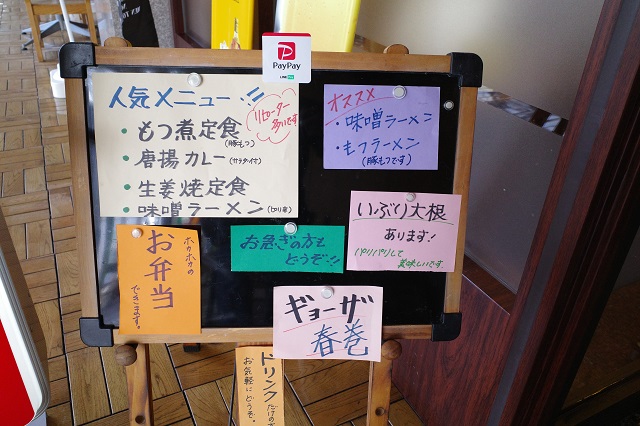 PayPay
人気メニュー!!
リピーター
多いです
・もつ煮定食
(豚もつ)
・唐揚カレー(サラダ付)
・生姜焼定食
味噌ラーメン(ピリ辛)
オススメ
・味噌ラーメン
・もつラーメン
(豚もつです)
いぶり大根
あります!!
パリパリして
美味しいです。
お急ぎの方も
どうぞ!!
ホカホカの
お弁当
できます。
ギョーザ
春巻
ドリンクだけの
お気軽にどうぞ!